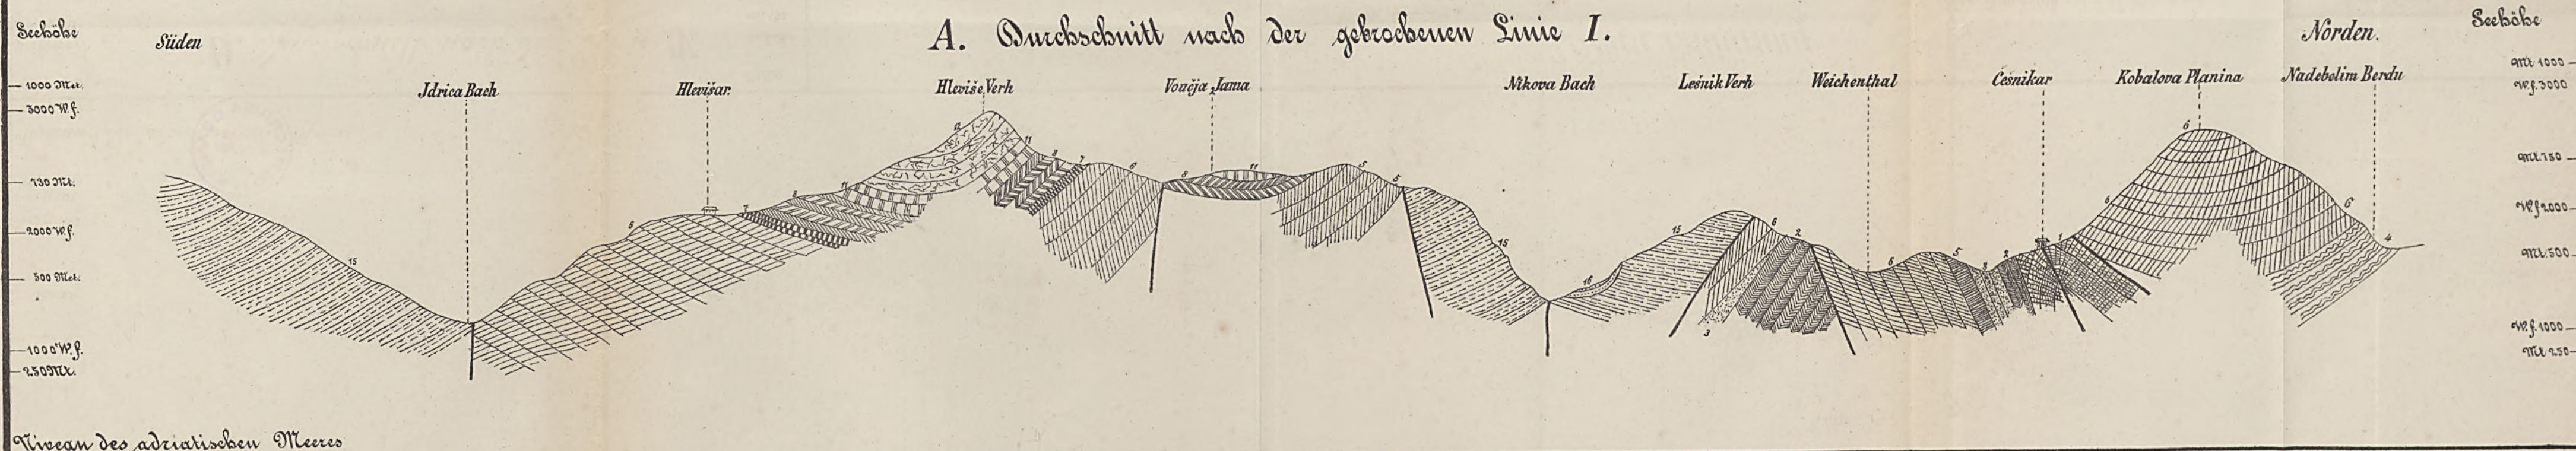 A. Durchschnitt nach der gebrochenen Linie I.
Seehöhe
Süden
Norden.
Seehöhe
1000 Met.
3000 W.f.
750 Mt.
2000 W.f.
500 Met.
1000 W.f.
250 Mt.
Jdrica Bach
Hlevišar.
Hleviše Verh
Vončja Jama
Nikova Bach
Lešnik Verh
Weichenthal
Česnikar
Kobalova Planina
Nadebelim Berdu
Mt 1000
W.f. 3000
Mt. 750
W.f 2000
Mt. 500
W.f. 1000
Mt 250
15
6
7
8
11
12
11
8
7
6
8
11
5
5
15
16
15
6
2
3
6
5
3
2
1
6
6
6
4
Niveau des adriatischen Meeres